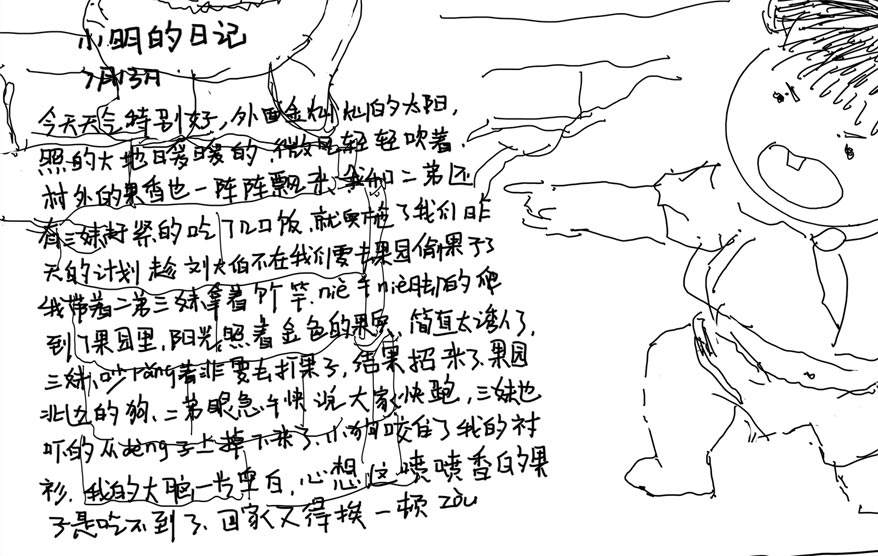 小明的日记
7月13日
今天天气特别好,外面金灿灿的太阳,
照的大地暖暖的.微风轻轻吹着.
村外的果香也一阵阵飘来.我和二弟还
有三妹赶紧的吃了几口饭,就实施了我们昨
天的计划趁刘大伯不在我们要去果园偷果子了
我带着二弟三妹拿着竹竿.niè手niè脚的爬
到了果园里,阳光照着金色的果实,简直太诱人了,
三妹吵rǎng着非要去打果子,结果招来了果园
北边的狗.二弟眼急手快说大家快跑,三妹也
吓的从deng子上掉下来了.小狗咬住了我的衬
衫.我的大脑一片空白,心想这喷喷香的果
子是吃不到了.回家又得挨一顿zòu